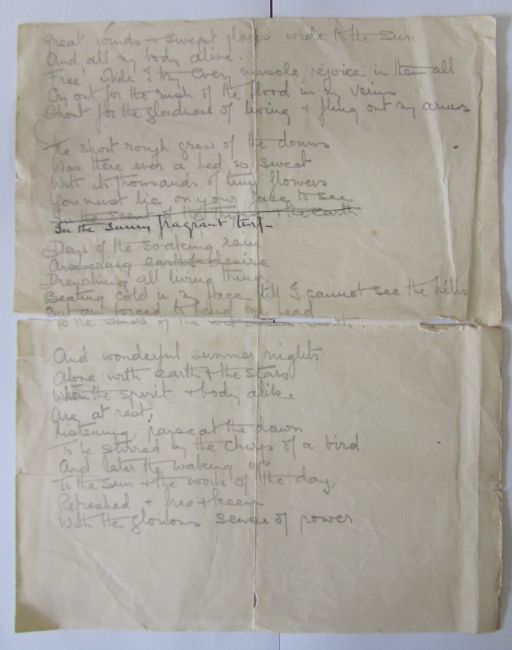 Great winds & swept places wide to the sun
And all my body alive.
Free! I try every muscle, rejoice in them all
Cry out for the rush of the flood in my veins
Shout for the gladness of living & fling out my arms
The short rough grass of the downs
Was there ever a bed so sweet
With its thousands of tiny flowers
You must lie on your face to see
In the scent of the the earth
In the sunny fragrant turf.
Days of the soaking rain
Answering earth's desire
Drenching all living things
Beating cold in my face till I cannot see the hills
forced to bend my head
To the of the
And wonderful summer nights
Alone with earth & the stars
When the spirit & body alike
Are at rest,
Listening, at the dawn
To be stirred by the chirps of a bird
And later the waking up
To the sun & the work of the day
Refreshed & free & keen
With the glorious sense of power